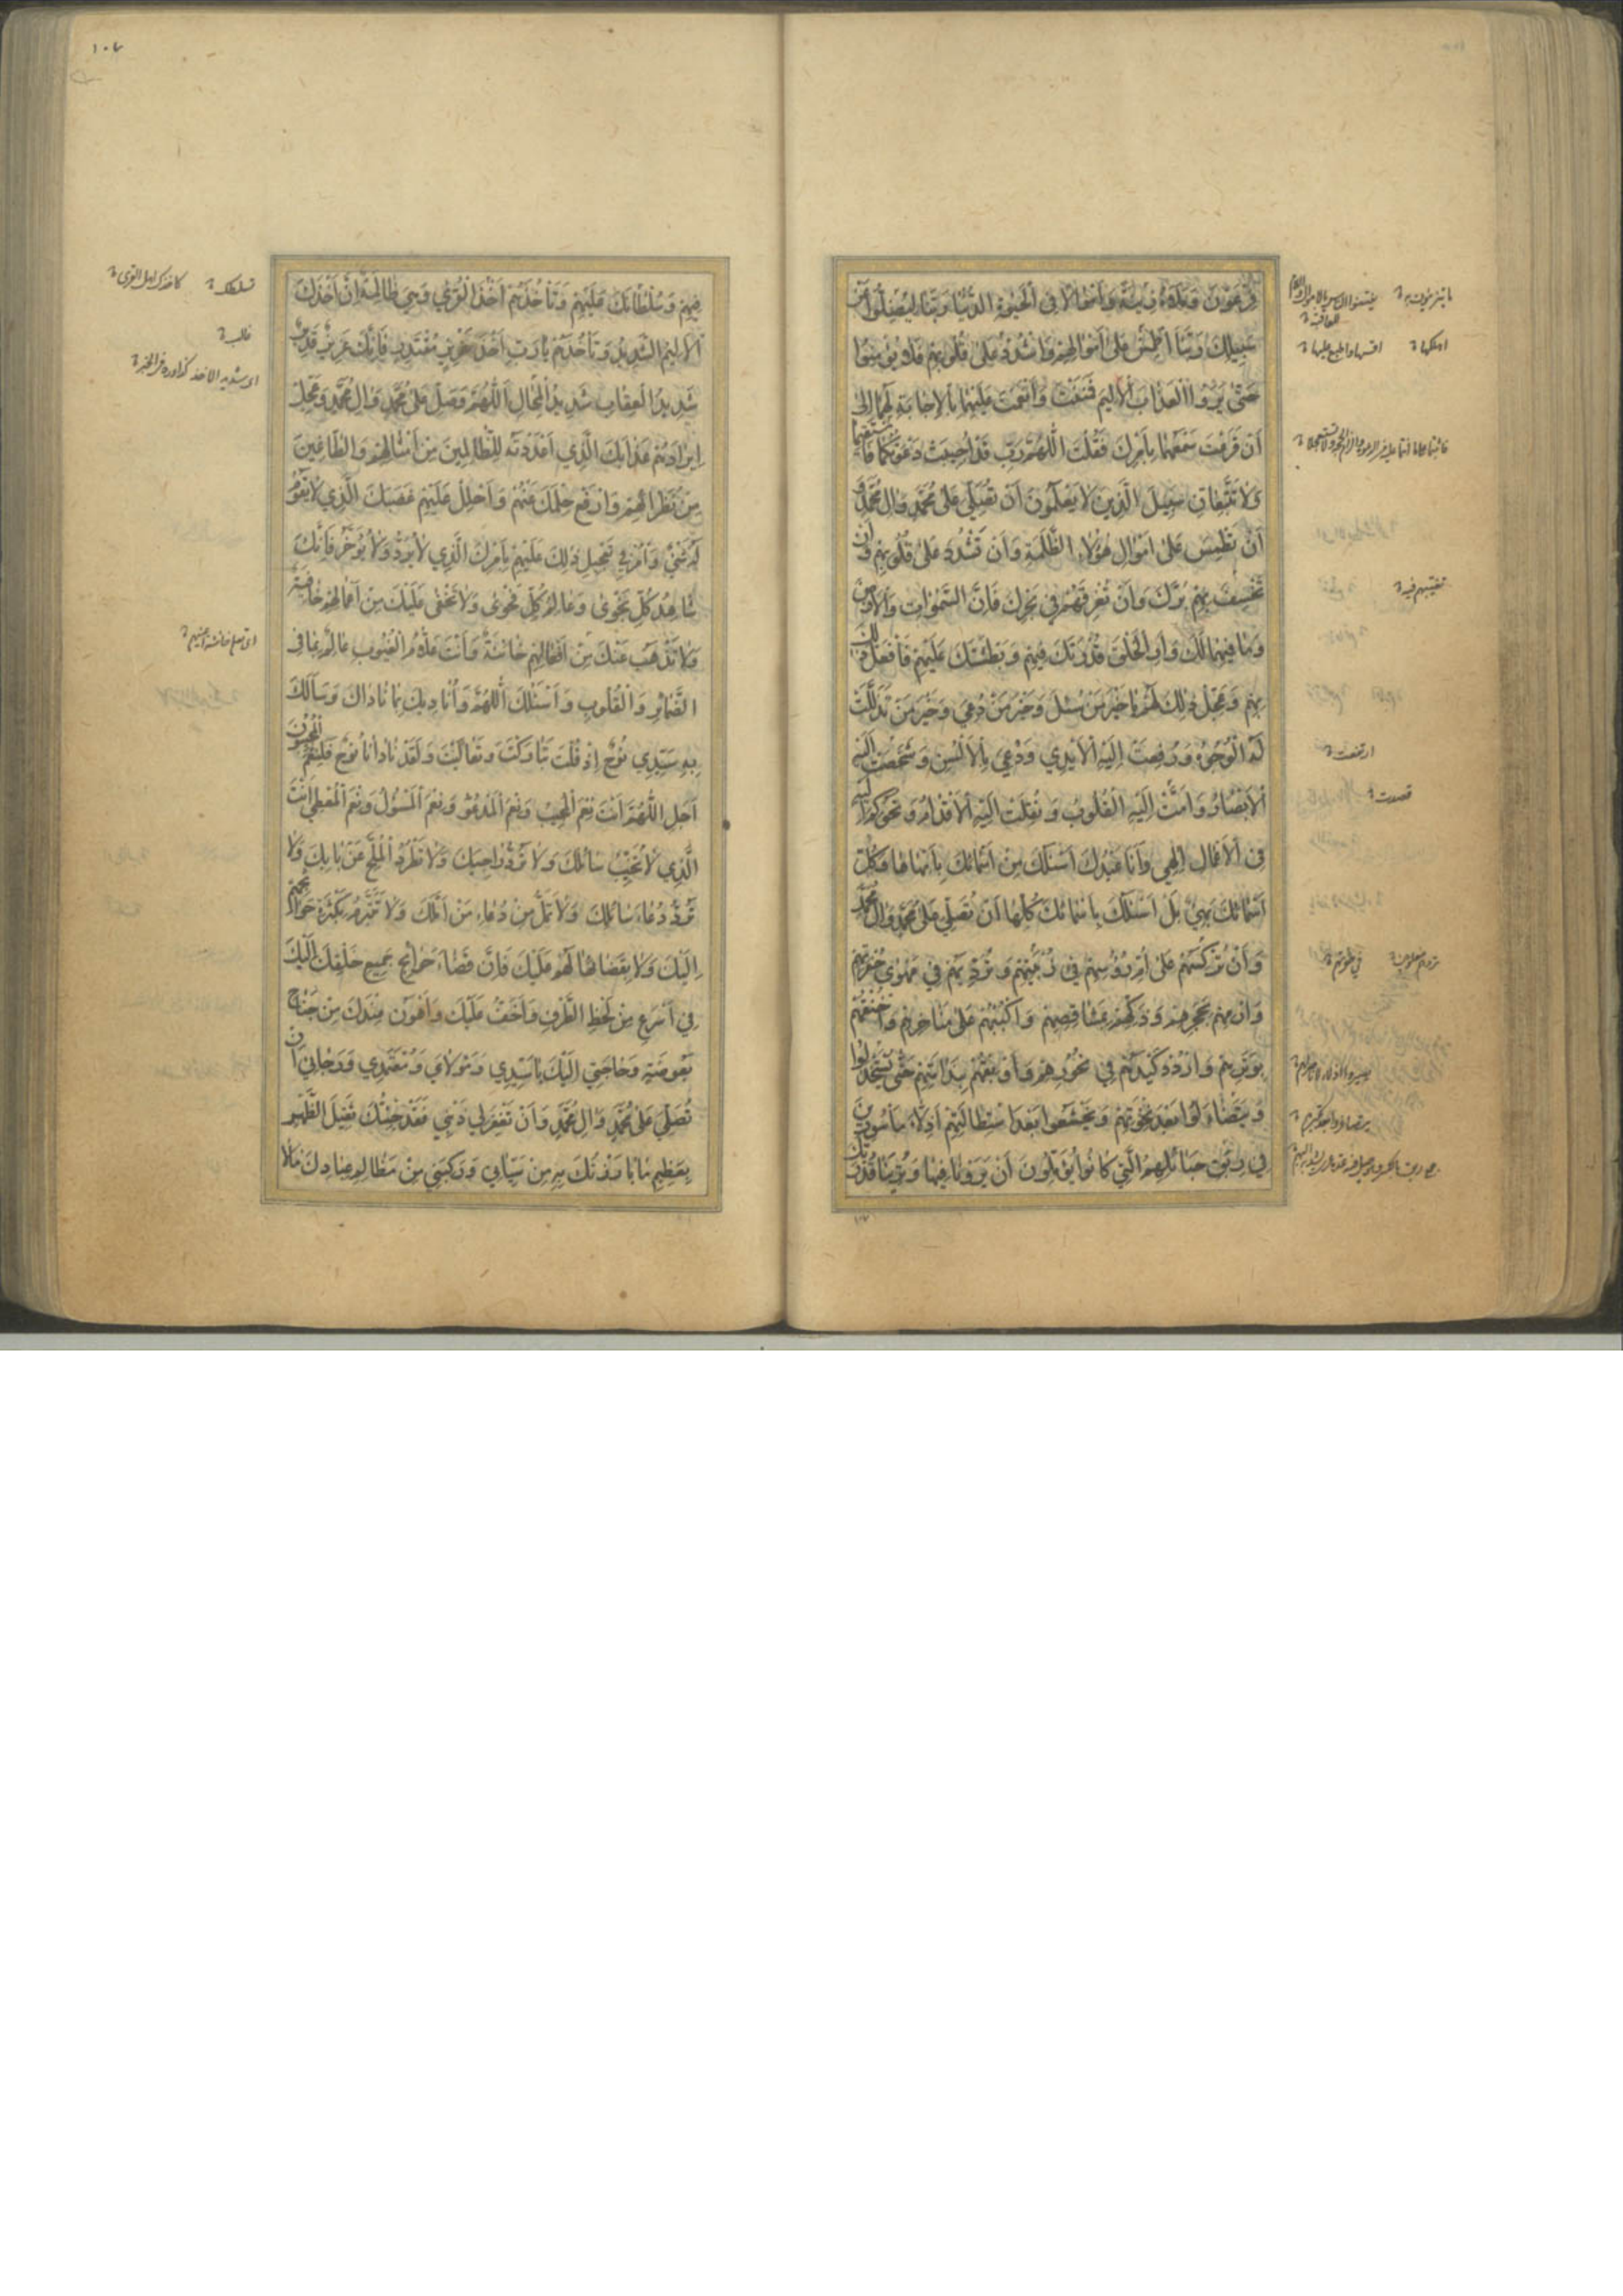 فِرْعَوْنَ وَمَلَأَهُ زِينَةً وَأَمْوَالًا فِي الْحَيٰوةِ الدُّنْيَا رَبَّنَا لِيُضِلُّوا عَنْ
سَبِيلِكَ رَبَّنَا اطْمِسْ عَلٰى أَمْوَالِهِمْ وَاشْدُدْ عَلٰى قُلُوبِهِمْ فَلَا يُؤْمِنُوا
حَتّٰى يَرَوُا الْعَذَابَ الْأَلِيمَ فَمَنَنْتَ وَأَنْعَمْتَ عَلَيْهِمَا بِالْإِجَابَةِ لَهُمَا إِلٰى
أَنْ قَرَعْتَ سَمْعَهُمَا بِأَمْرِكَ فَقُلْتَ اللّٰهُمَّ رَبِّ قَدْ أُجِيبَتْ دَعْوَتُكُمَا فَاسْتَقِيمَا
وَلَا تَتَّبِعَانِّ سَبِيلَ الَّذِينَ لَا يَعْلَمُونَ أَنْ تُصَلِّيَ عَلٰى مُحَمَّدٍ وَآلِ مُحَمَّدٍ وَ
أَنْ تَطْمِسَ عَلٰى أَمْوَالِ هٰؤُلَاءِ الظَّلَمَةِ وَأَنْ تَشْدُدَ عَلٰى قُلُوبِهِمْ وَأَنْ
تَخْسِفَ بِهِمْ بَرَّكَ وَأَنْ تُغْرِقَهُمْ فِي بَحْرِكَ فَإِنَّ السَّمٰوَاتِ وَالْأَرْضَ
وَمَا فِيهِمَا لَكَ وَأَرِ الْخَلْقَ قُدْرَتَكَ فِيهِمْ وَبَطْشَتَكَ عَلَيْهِمْ فَافْعَلْ ذٰلِكَ
بِهِمْ وَعَجِّلْ ذٰلِكَ لَهُمْ يَا خَيْرَ مَنْ سُئِلَ وَخَيْرَ مَنْ دُعِيَ وَخَيْرَ مَنْ تَذَلَّلَتْ
لَهُ الْوُجُوهُ وَرُفِعَتْ إِلَيْهِ الْأَيْدِي وَدُعِيَ بِالْأَلْسُنِ وَشَخَصَتْ إِلَيْهِ
الْأَبْصَارُ وَأَمَّتْ إِلَيْهِ الْقُلُوبُ وَنُقِلَتْ إِلَيْهِ الْأَقْدَامُ وَتُحُوكِمَ إِلَيْهِ
فِي الْأَعْمَالِ إِلٰهِي وَأَنَا عَبْدُكَ أَسْئَلُكَ مِنْ أَسْمَائِكَ بِأَبْهَاهَا وَكُلُّ
أَسْمَائِكَ بَهِيٌّ بَلْ أَسْئَلُكَ بِأَسْمَائِكَ كُلِّهَا أَنْ تُصَلِّيَ عَلٰى مُحَمَّدٍ وَآلِ مُحَمَّدٍ
وَأَنْ تُرْكِسَهُمْ عَلٰى أُمِّ رُؤُسِهِمْ فِي زُبْيَتِهِمْ وَتُرْدِيَهُمْ فِي مَهْوٰى حُفْرَتِهِمْ
وَارْمِهِمْ بِحَجَرِهِمْ وَذَكِّهِمْ بِمَشَاقِصِهِمْ وَاكْبُبْهُمْ عَلٰى مَنَاخِرِهِمْ وَاخْنُقْهُمْ
بِوَتَرِهِمْ وَارْدُدْ كَيْدَهُمْ فِي نُحُورِهِمْ وَأَوْبِقْهُمْ بِنَدَامَتِهِمْ حَتّٰى يَسْتَخْذِلُوا
وَيَتَضَاءَلُوا بَعْدَ نَخْوَتِهِمْ وَيَخْشَعُوا بَعْدَ اسْتِطَالَتِهِمْ أَذِلَّاءَ مَأْسُورِينَ
فِي رِبَقِ حَبَائِلِهِمُ الَّتِي كَانُوا يُؤَمِّلُونَ أَنْ يَرَوْنَا فِيهَا وَتُرِيَنَا قُدْرَتَكَ
فِيهِمْ وَسُلْطَانَكَ عَلَيْهِمْ وَتَأْخُذَهُمْ أَخْذَ الْقُرٰى وَهِيَ ظَالِمَةٌ إِنَّ أَخْذَكَ
الْأَلِيمُ الشَّدِيدُ وَتَأْخُذَهُمْ يَا رَبِّ أَخْذَ عَزِيزٍ مُقْتَدِرٍ فَإِنَّكَ عَزِيزٌ قَدِيرٌ
شَدِيدُ الْعِقَابِ شَدِيدُ الْمِحَالِ اللّٰهُمَّ صَلِّ عَلٰى مُحَمَّدٍ وَآلِ مُحَمَّدٍ وَعَجِّلْ
إِيرَادَهُمْ عَذَابَكَ الَّذِي أَعْدَدْتَهُ لِلظَّالِمِينَ مِنْ أَمْثَالِهِمْ وَالطَّاغِينَ
مِنْ نُظَرَائِهِمْ وَارْفَعْ حِلْمَكَ عَنْهُمْ وَاحْلُلْ عَلَيْهِمْ غَضَبَكَ الَّذِي لَا يَقُومُ
لَهُ شَيْءٌ وَأْمُرْ فِي تَعْجِيلِ ذٰلِكَ عَلَيْهِمْ بِأَمْرِكَ الَّذِي لَا يُرَدُّ وَلَا يُؤَخَّرُ فَإِنَّكَ
شَاهِدُ كُلِّ نَجْوٰى وَعَالِمُ كُلِّ فَحْوٰى وَلَا تَخْفٰى عَلَيْكَ مِنْ أَعْمَالِهِمْ خَافِيَةٌ
وَلَا تَذْهَبُ عَنْكَ مِنْ أَفْعَالِهِمْ خَائِنَةٌ وَأَنْتَ عَلَّامُ الْغُيُوبِ عَالِمٌ بِمَا فِي
الضَّمَائِرِ وَالْقُلُوبِ وَأَسْئَلُكَ اللّٰهُمَّ وَأُنَادِيكَ بِمَا نَادَاكَ وَسَأَلَكَ
بِهِ سَيِّدِي نُوحٌ إِذْ قُلْتَ تَبَارَكْتَ وَتَعَالَيْتَ وَلَقَدْ نَادَانَا نُوحٌ فَلَنِعْمَ الْمُجِيبُونَ
أَجَلِ اللّٰهُمَّ أَنْتَ نِعْمَ الْمُجِيبُ وَنِعْمَ الْمَدْعُوُّ وَنِعْمَ الْمَسْئُولُ وَنِعْمَ الْمُعْطِي أَنْتَ
الَّذِي لَا تُخَيِّبُ سَائِلَكَ وَلَا تَرُدُّ رَاجِيَكَ وَلَا تَطْرُدُ الْمُلِحَّ عَنْ بَابِكَ وَلَا
تَرُدُّ دُعَاءَ سَائِلِكَ وَلَا تَمَلُّ مِنْ دُعَاءِ مَنْ أَمَّلَكَ وَلَا تَتَبَرَّمُ بِكَثْرَةِ حَوَائِجِهِمْ
إِلَيْكَ وَلَا بِقَضَائِهَا لَهُمْ عَلَيْكَ فَإِنَّ قَضَاءَ حَوَائِجِ جَمِيعِ خَلْقِكَ إِلَيْكَ
فِي أَسْرَعِ مِنْ لَحْظِ الطَّرْفِ وَأَخَفُّ عَلَيْكَ وَأَهْوَنُ عِنْدَكَ مِنْ جَنَاحِ
بَعُوضَةٍ وَحَاجَتِي إِلَيْكَ يَا سَيِّدِي وَمَوْلَايَ وَمُعْتَمَدِي وَرَجَائِي أَنْ
تُصَلِّيَ عَلٰى مُحَمَّدٍ وَآلِ مُحَمَّدٍ وَأَنْ تَغْفِرَ لِي ذَنْبِي فَقَدْ جِئْتُكَ ثَقِيلَ الظَّهْرِ
بِعَظِيمِ مَا بَارَزْتُكَ بِهِ مِنْ سَيِّئَاتِي وَرَكِبَنِي مِنْ مَظَالِمِ عِبَادِكَ مَا لَا